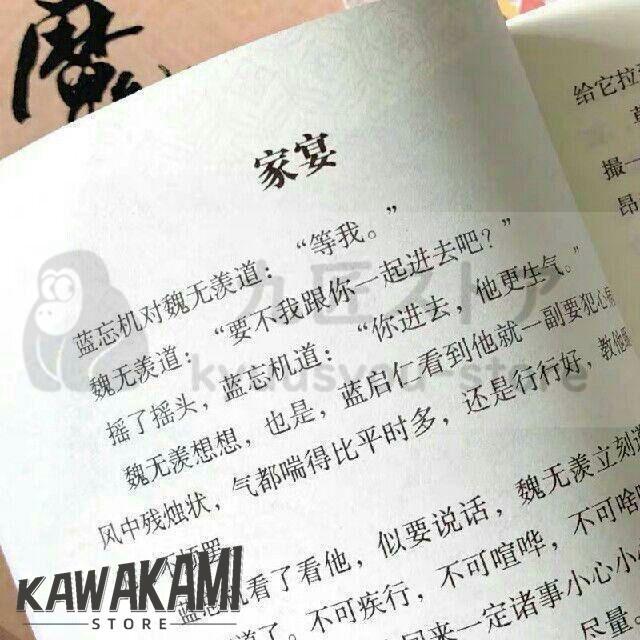 魔
家宴
蓝忘机对魏无羡道：“等我。”
魏无羡道：“要不我跟你一起进去吧？”
摇了摇头，蓝忘机道：“你进去，他更生气。”
魏无羡想想，也是，蓝启仁看到他就一副要犯心
风中残烛状，气都喘得比平时多，还是行行好，教他
看了看他，似要说话，魏无羡立刻
道了。不可疾行，不可喧哗，不可
回来一定诸事小心
尽量
给它拉
撮一
昂
九匠ストア
kyuusyou-store
KAWAKAMI
STORE